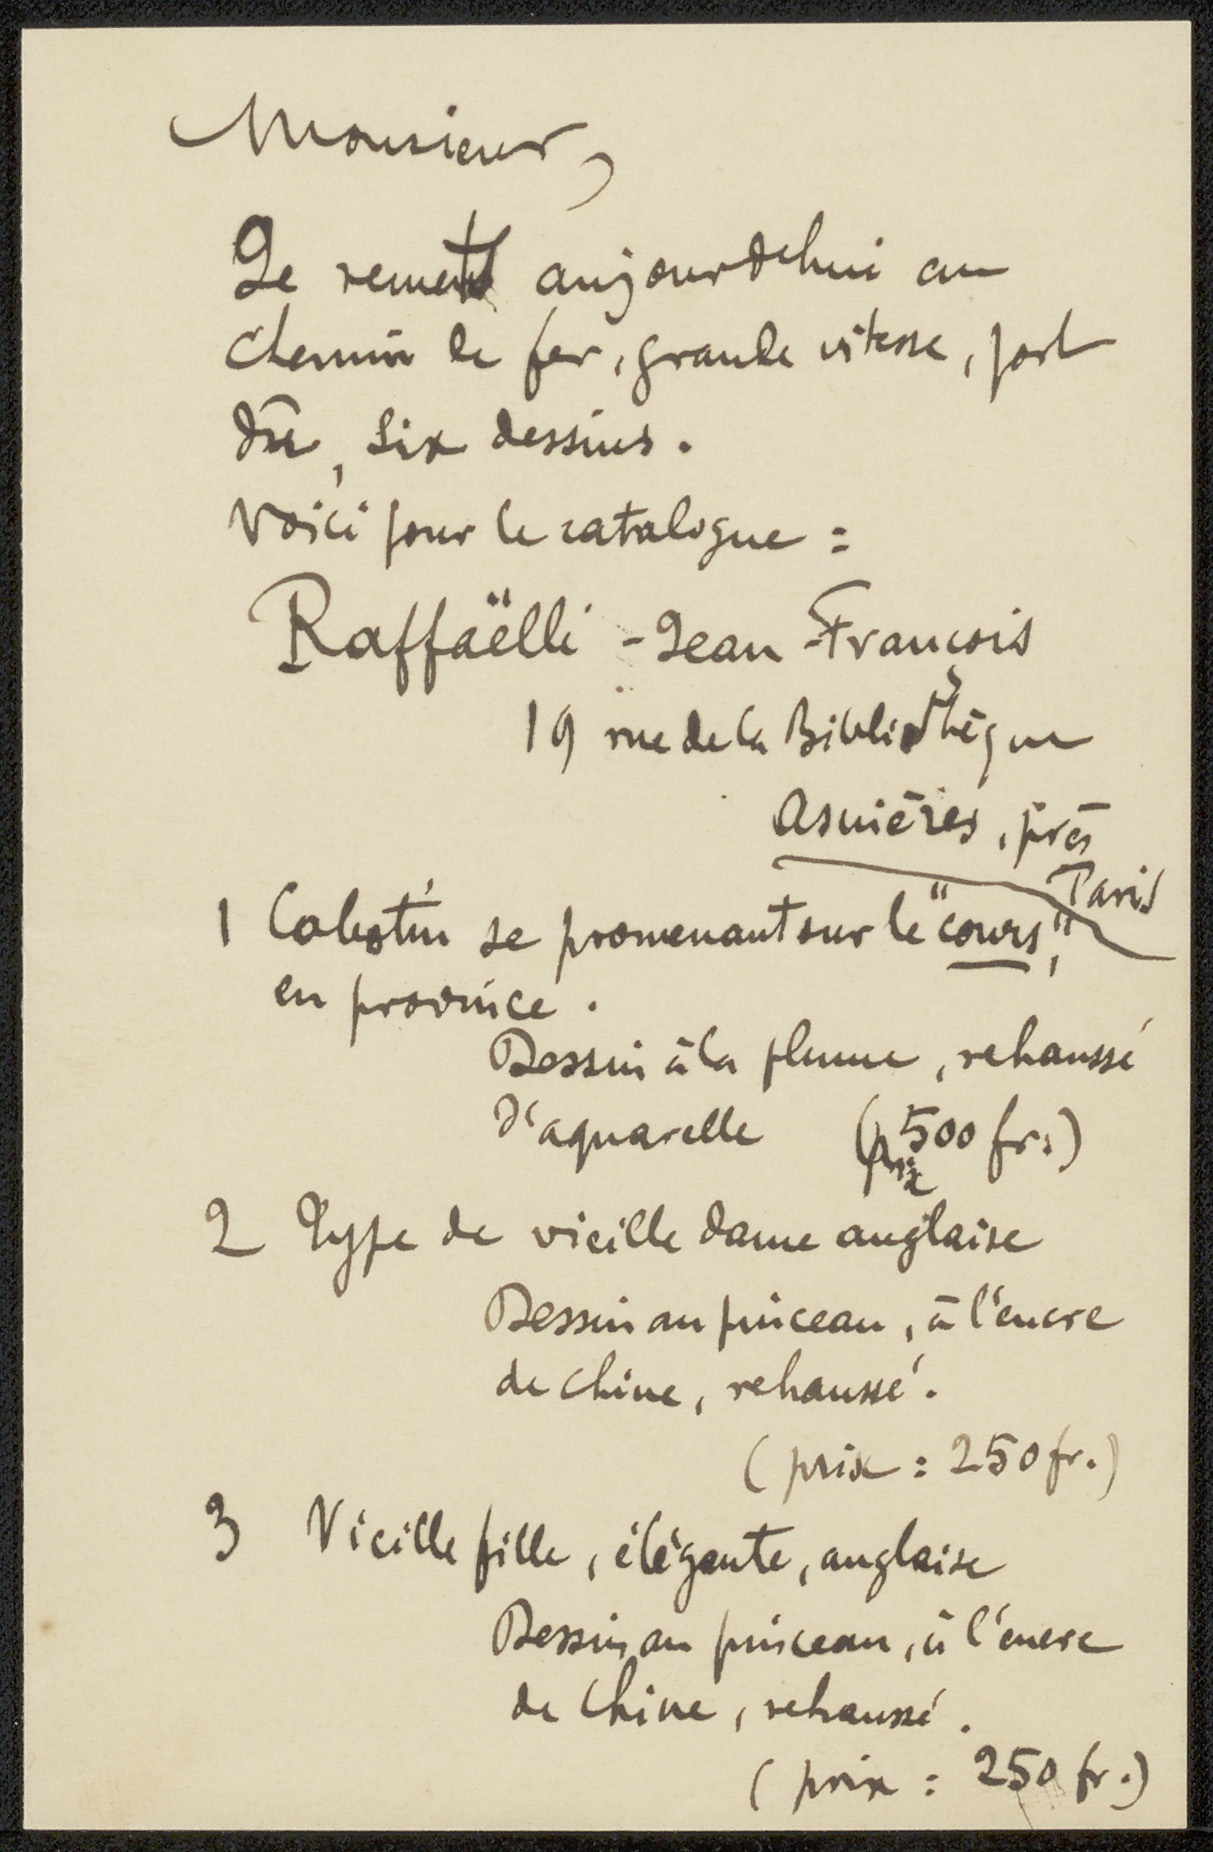 Monsieur,
Je remets aujourdehui au
chemin de fer, grande vitesse, port
dû, six dessins.
Voici pour le catalogue :
Raffaëlli - Jean-François
19 rue de la Bibliothèque
Asnières, près
Paris
1 Cabotin se promenant sur le "cours,"
en province.
Dessin à la plume, rehaussé
d'aquarelle (prix 500 fr.)
2 Type de vieille dame anglaise
Dessin au pinceau, à l'encre
de chine, rehaussé.
(prix : 250 fr.)
3 Vieille fille, élégante, anglaise
Dessin au pinceau, à l'encre
de chine, rehaussé.
(prix : 250 fr.)